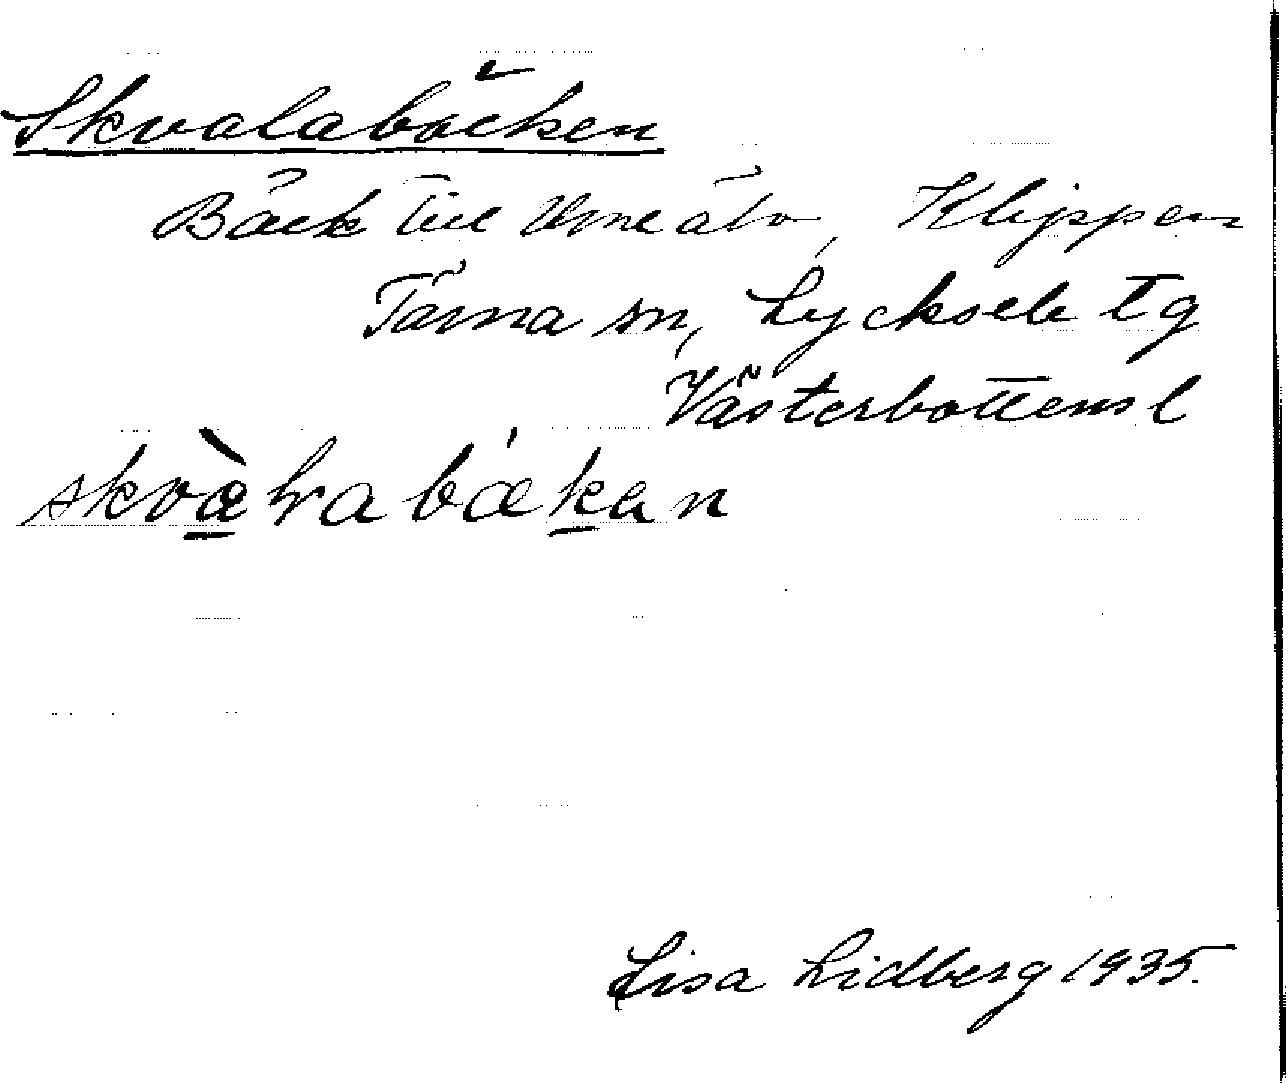 Skvalabäcken
Bäck till Ume älv, Klippen
Tärna sn, Lycksele tg
Västerbottens l
Lisa Lidberg 1935.